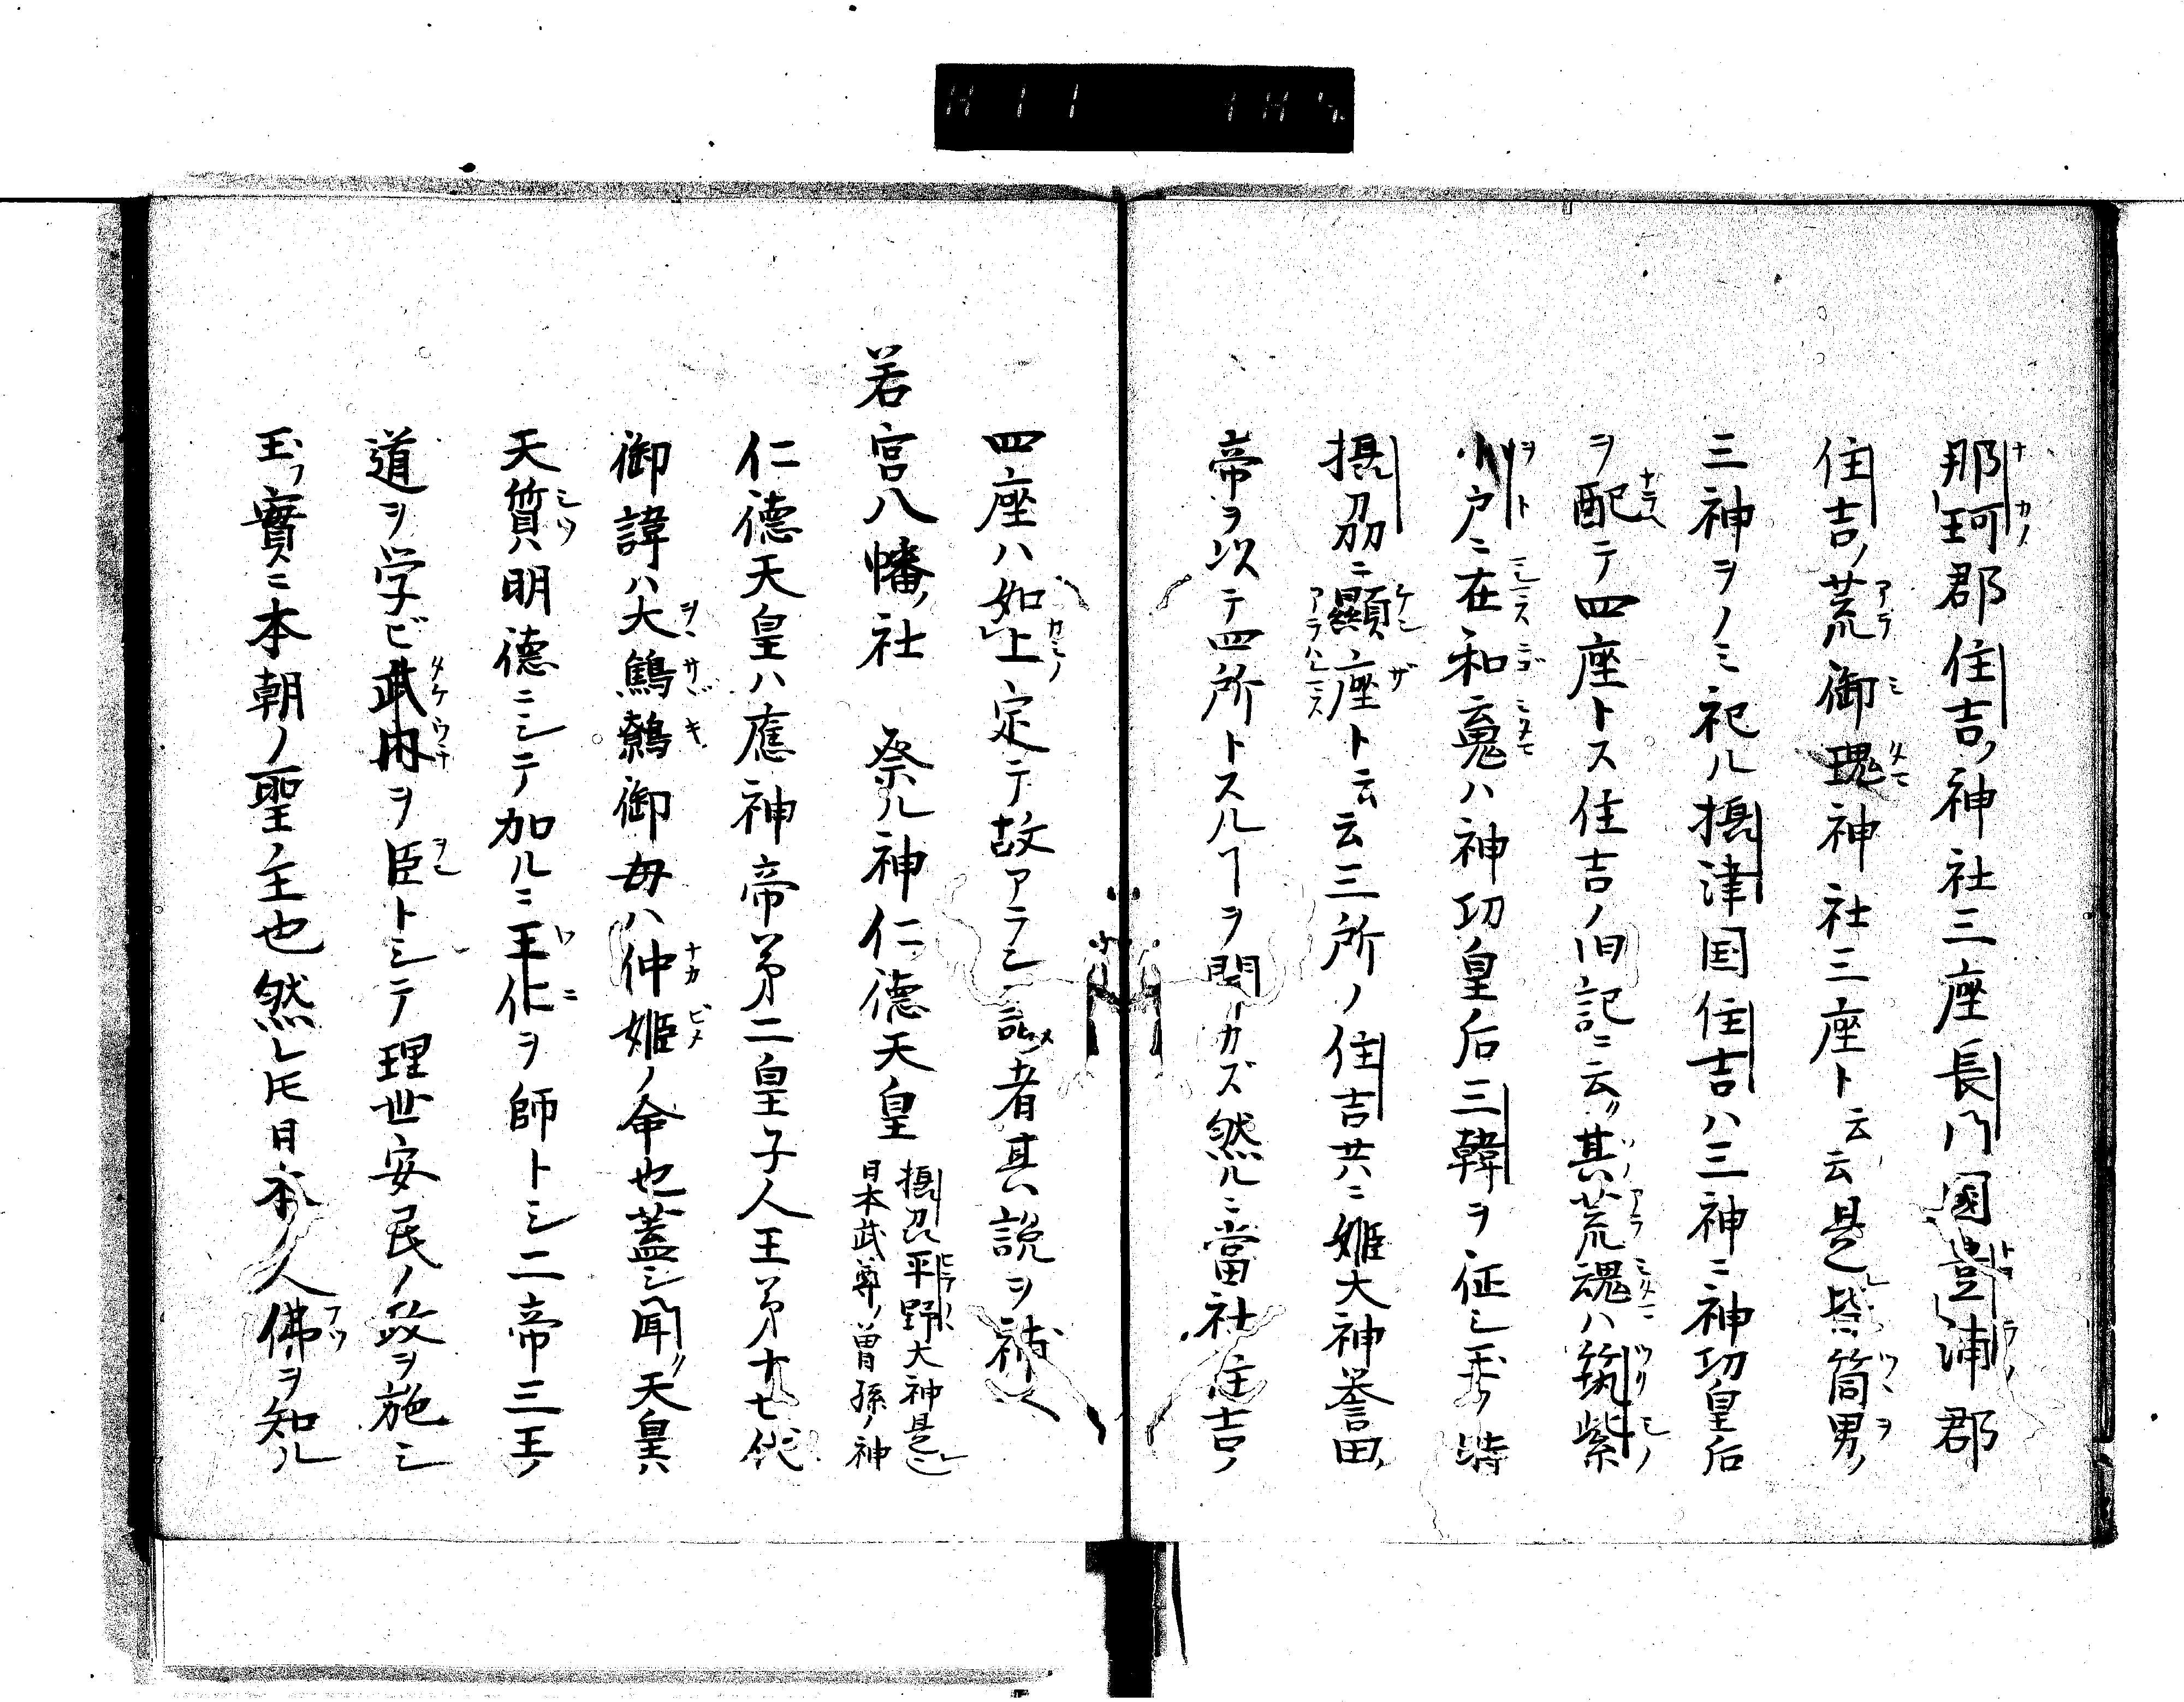 那珂郡住吉ノ神社三座長門國豊浦郡
住吉ノ荒御瑰神社三座ト云云是皆筒男ノ
三神ヲノミ祀ル摂津国住吉ハ三神ニ神功皇后
ヲ配テ四座トス住吉ノ旧記ニ云其荒魂ハ筑紫
小戸ニ在和魂ハ神功皇后三韓ヲ征シ玉フ時
摂刕ニ顯座ト云云三所ノ住吉共ニ姫大神誉田
帝ヲ以テ四所トスルヿヲ聞カズ然ルニ當社住吉ノ
四座ハ如上定テ故アラン識者其説ヲ補へ
若宮八幡ノ社 祭ル神仁徳天皇 摂刕平野大神是ニ
日本武尊ノ曽孫ノ神
仁徳天皇ハ應神帝第二皇子人王第十七代
御諱ハ大鷦鷯御母ハ仲姫ノ命也蓋シ聞ク天皇ハ
天質ハ明徳ニシテ加ルニ王仁ヲ師トシ二帝三王ノ
道ヲ学ビ武内ヲ臣トシテ理世安民ノ政ヲ施シ
玉フ實ニ本朝ノ聖主也然レ𪜈日本ノ人佛ヲ知ル